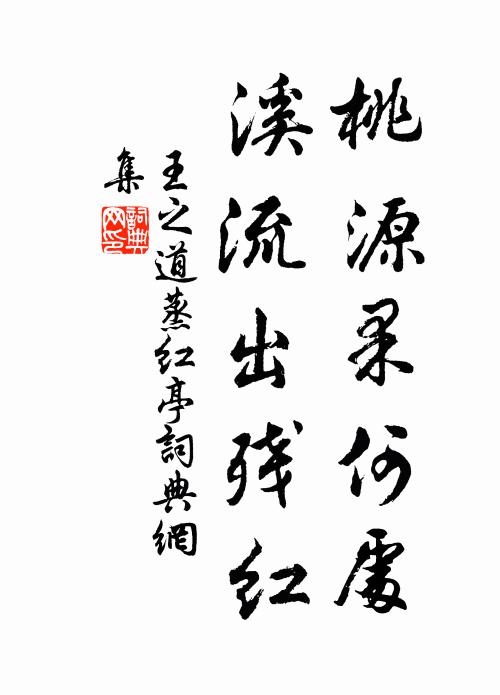 桃源果何處
溪流出残紅
王之道蒸紅亭詞典網
集
詞典网印